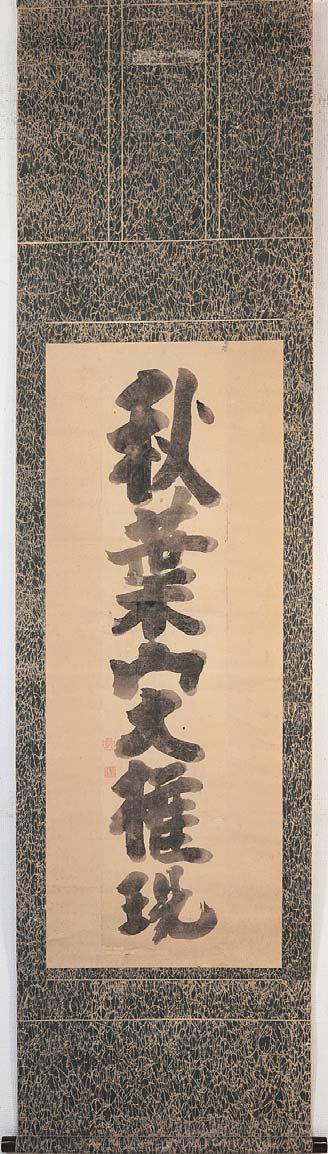 秋葉山大権現